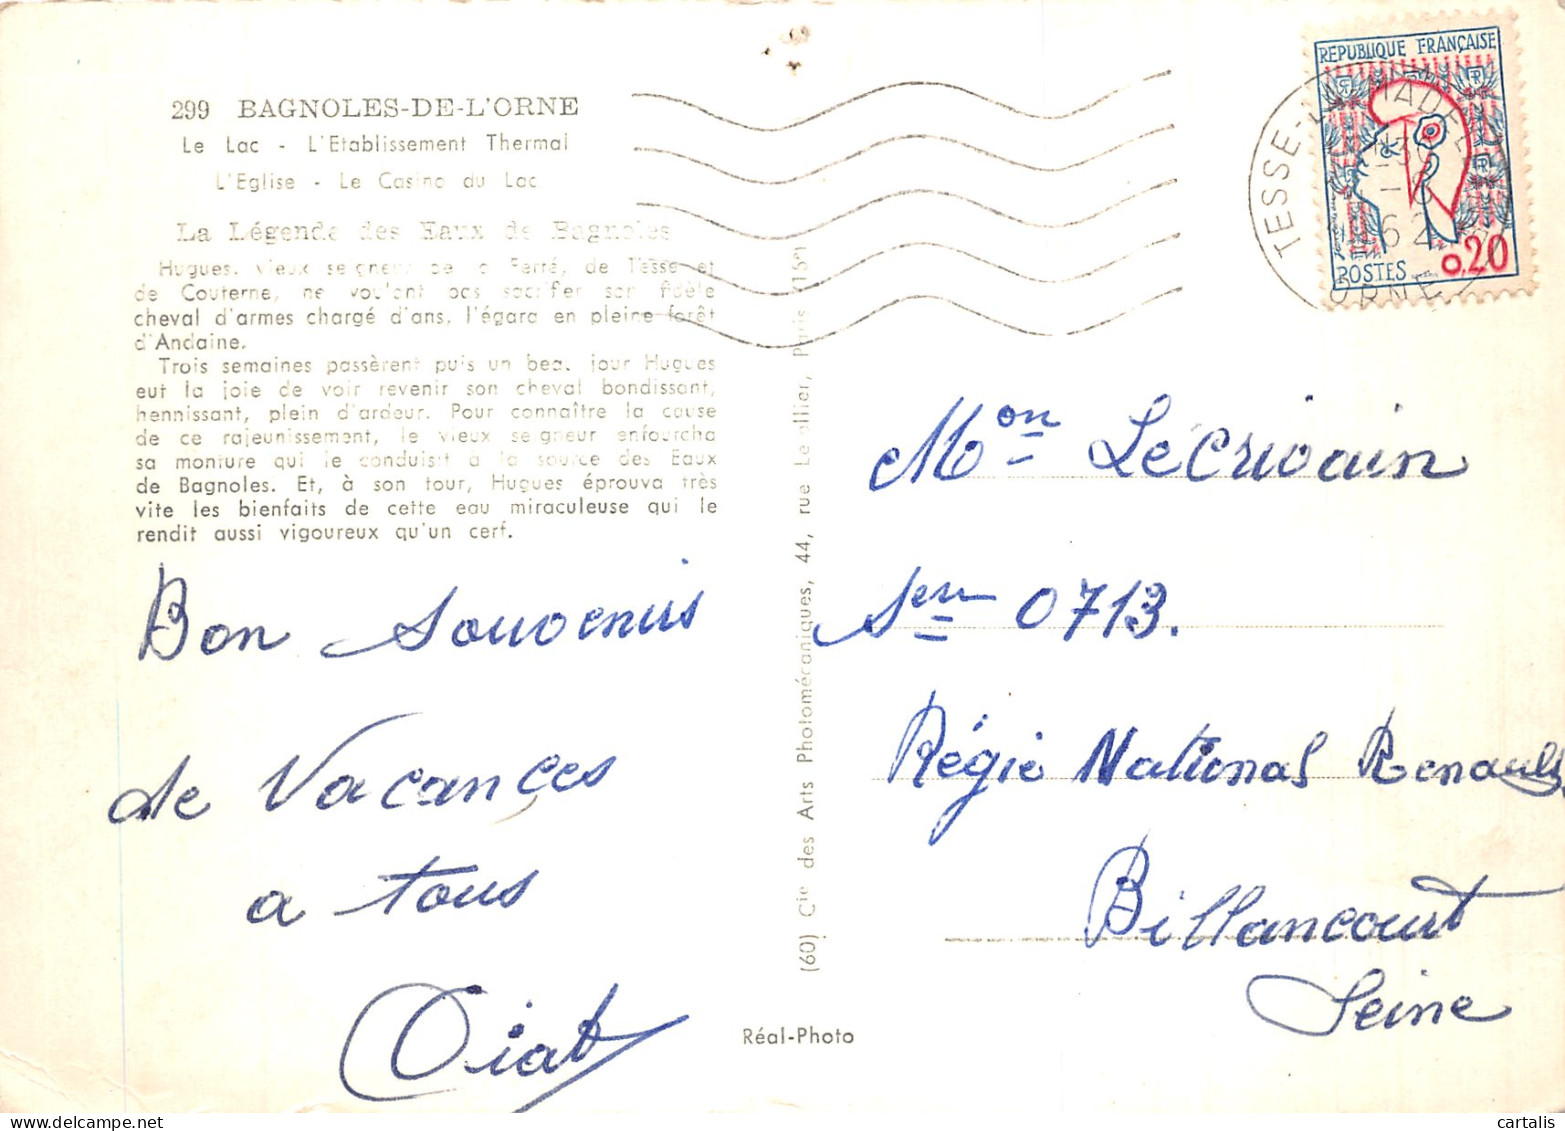 299 BAGNOLES-DE-L'ORNE
Le Lac - L'Etablissement Thermal
L'Eglise - Le Casino du Lac
La Légende des Eaux de Bagnoles
Hugues, vieux seigneur de la Ferré, de Tessé et
de Couterne, ne voulant pas sacrifer son fidèle
cheval d'armes chargé d'ans, l'égara en pleine forêt
d'Andaine.
Trois semaines passèrent puis un beau jour Hugues
eut la joie de voir revenir son cheval bondissant,
hennissant, plein d'ardeur. Pour connaître la cause
de ce rajeunissement, le vieux seigneur enfourcha
sa monture qui le conduisit à la source des Eaux
de Bagnoles. Et, à son tour, Hugues éprouva très
vite les bienfaits de cette eau miraculeuse qui le
rendit aussi vigoureux qu'un cerf.
Bon Souvenirs
de Vacances
a tous
(60) Cie des Arts Photomécaniques, 44, rue Letellier, Paris (15e)
Réal-Photo
REPUBLIQUE FRANÇAISE
POSTES 0,20
TESSE-LA-MADELEINE
ORNE
Mon Lécrivain
Sem 0713.
Régie National Renault
Billancourt
Seine
cartalis